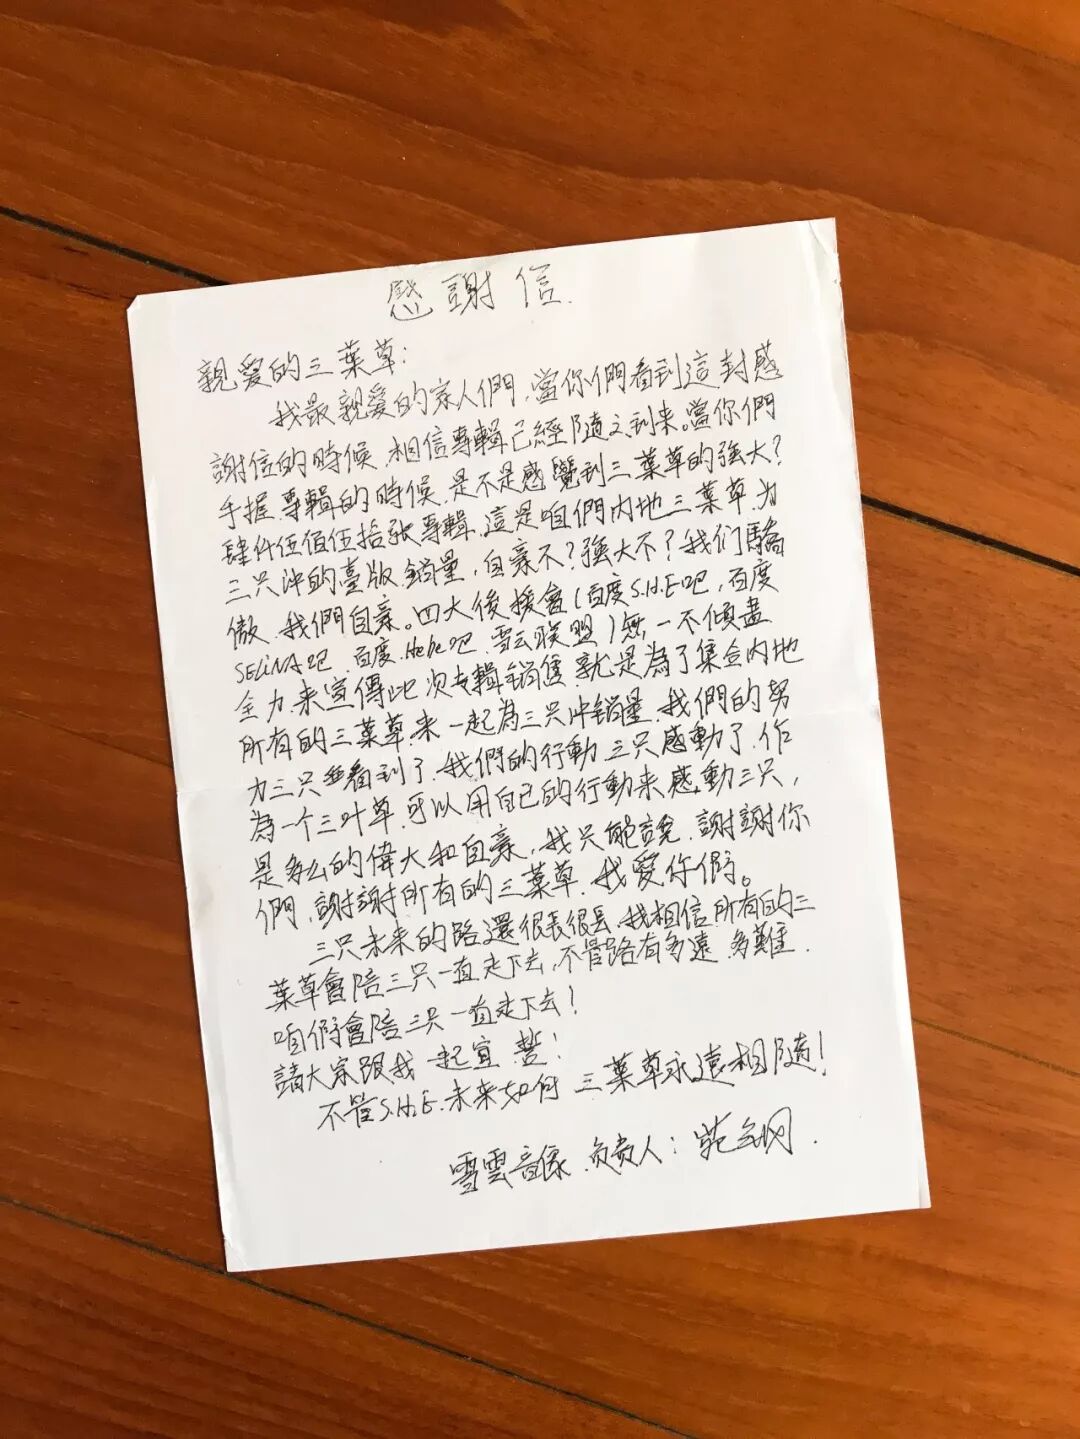 感謝信.
親愛的三葉草:
我最親愛的家人們,當你們看到這封感
謝信的時候,相信專輯已經隨之到来。當你們
手握專輯的時候,是不是感覺到三葉草的強大?
肆仟伍佰伍拾張專輯,這是咱們内地三葉草為
三只沖的臺版銷量,自豪不?強大不?我们驕
傲,我們自豪。四大後援會(百度S.H.E吧,百度
SELINA吧,百度Hebe吧,雪云联盟)無一不傾盡
全力来宣傳此次專輯銷售,就是為了集合内地
所有的三葉草,来一起為三只沖銷量,我們的努
力三只看到了,我們的行動三只感動了,作
為一个三叶草,可以用自己的行動来感動三只,
是多么的偉大和自豪,我只能說,謝謝你
們,謝謝所有的三葉草,我愛你們。
三只未来的路還很長很長,我相信所有的三
葉草會陪三只一直走下去,不管路有多遠,多難,
咱們會陪三只一直走下去!
請大家跟我一起宣誓!
不管S.H.E.未来如何 三葉草永遠相隨!
雪雲音像 负责人: